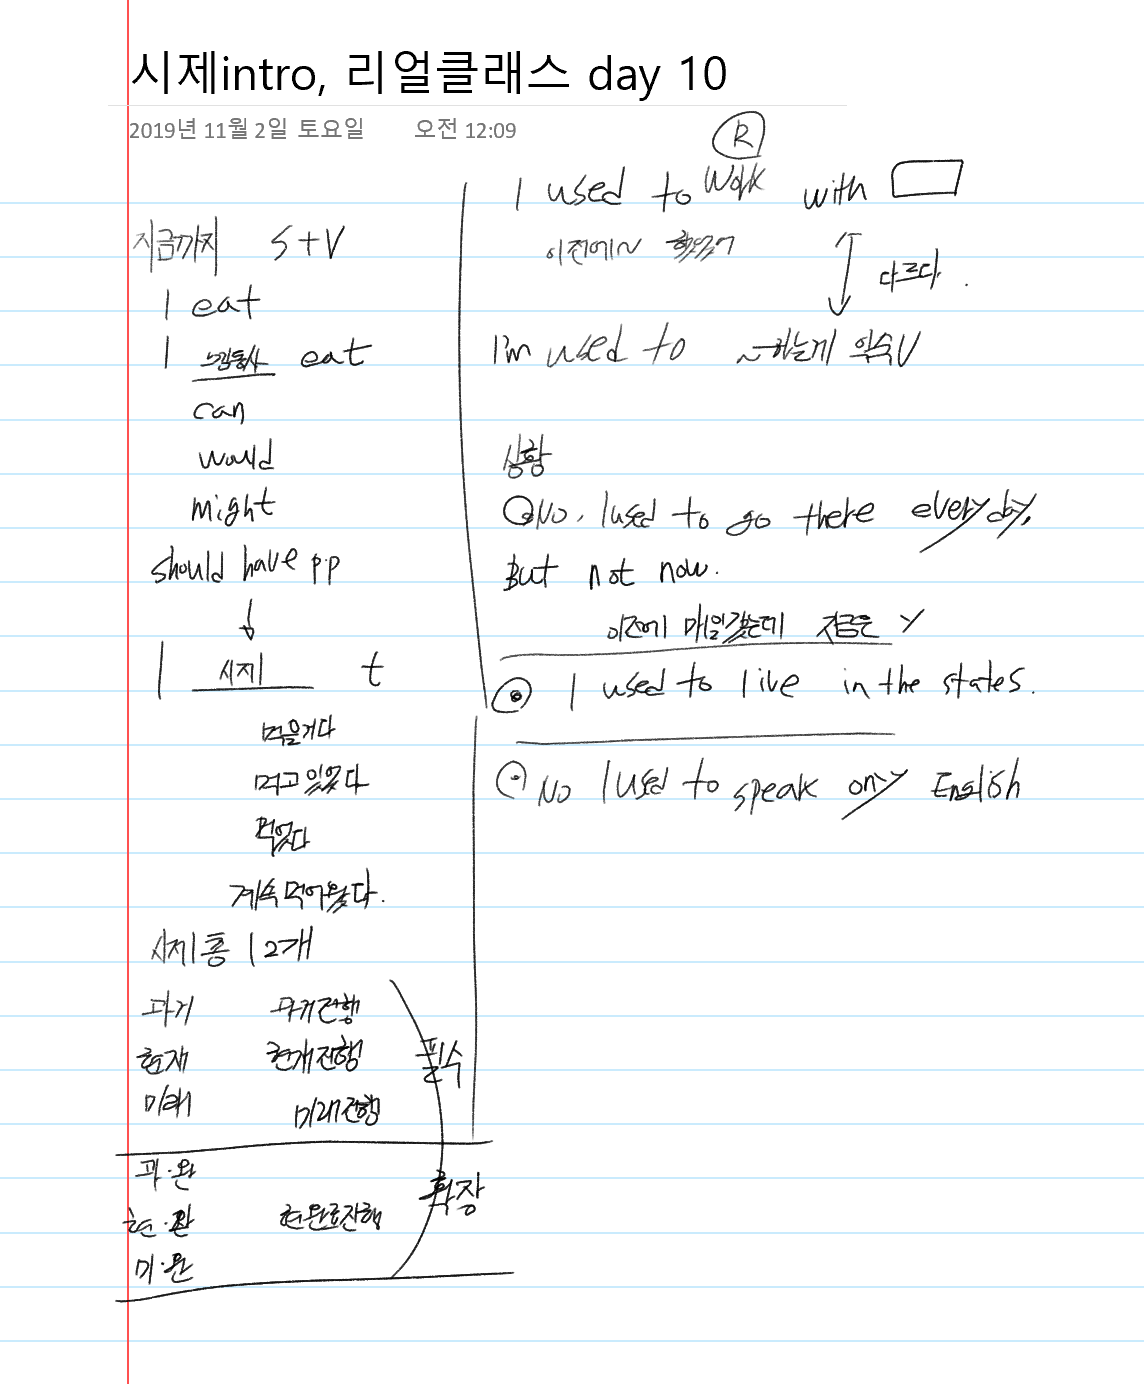 시제intro, 리얼클래스 day 10
2019년 11월 2일 토요일 오전 12:09
지금까지 S+V
I eat
I 느낌동사 eat
can
would
might
should have p.p
↓
I 시제 t
먹을거다
먹고 있었다
먹었다
계속 먹어왔다.
시제 총 12개
과거 과거진행
현재 현재진행
미래 미래진행
필수
과·완
현·완 현완료진행
미·완
확장
R
I used to work with
이전에~ 했었어
다르다.
I'm used to ~하는게 익숙
상황
No, I used to go there everyday,
But not now.
이전에 매일갔는데 지금은
I used to live in the states.
No I used to speak ony English